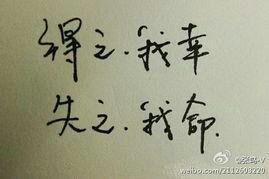 得之.我幸
失之.我命.
@张鸣-V
weibo.com/2112603220